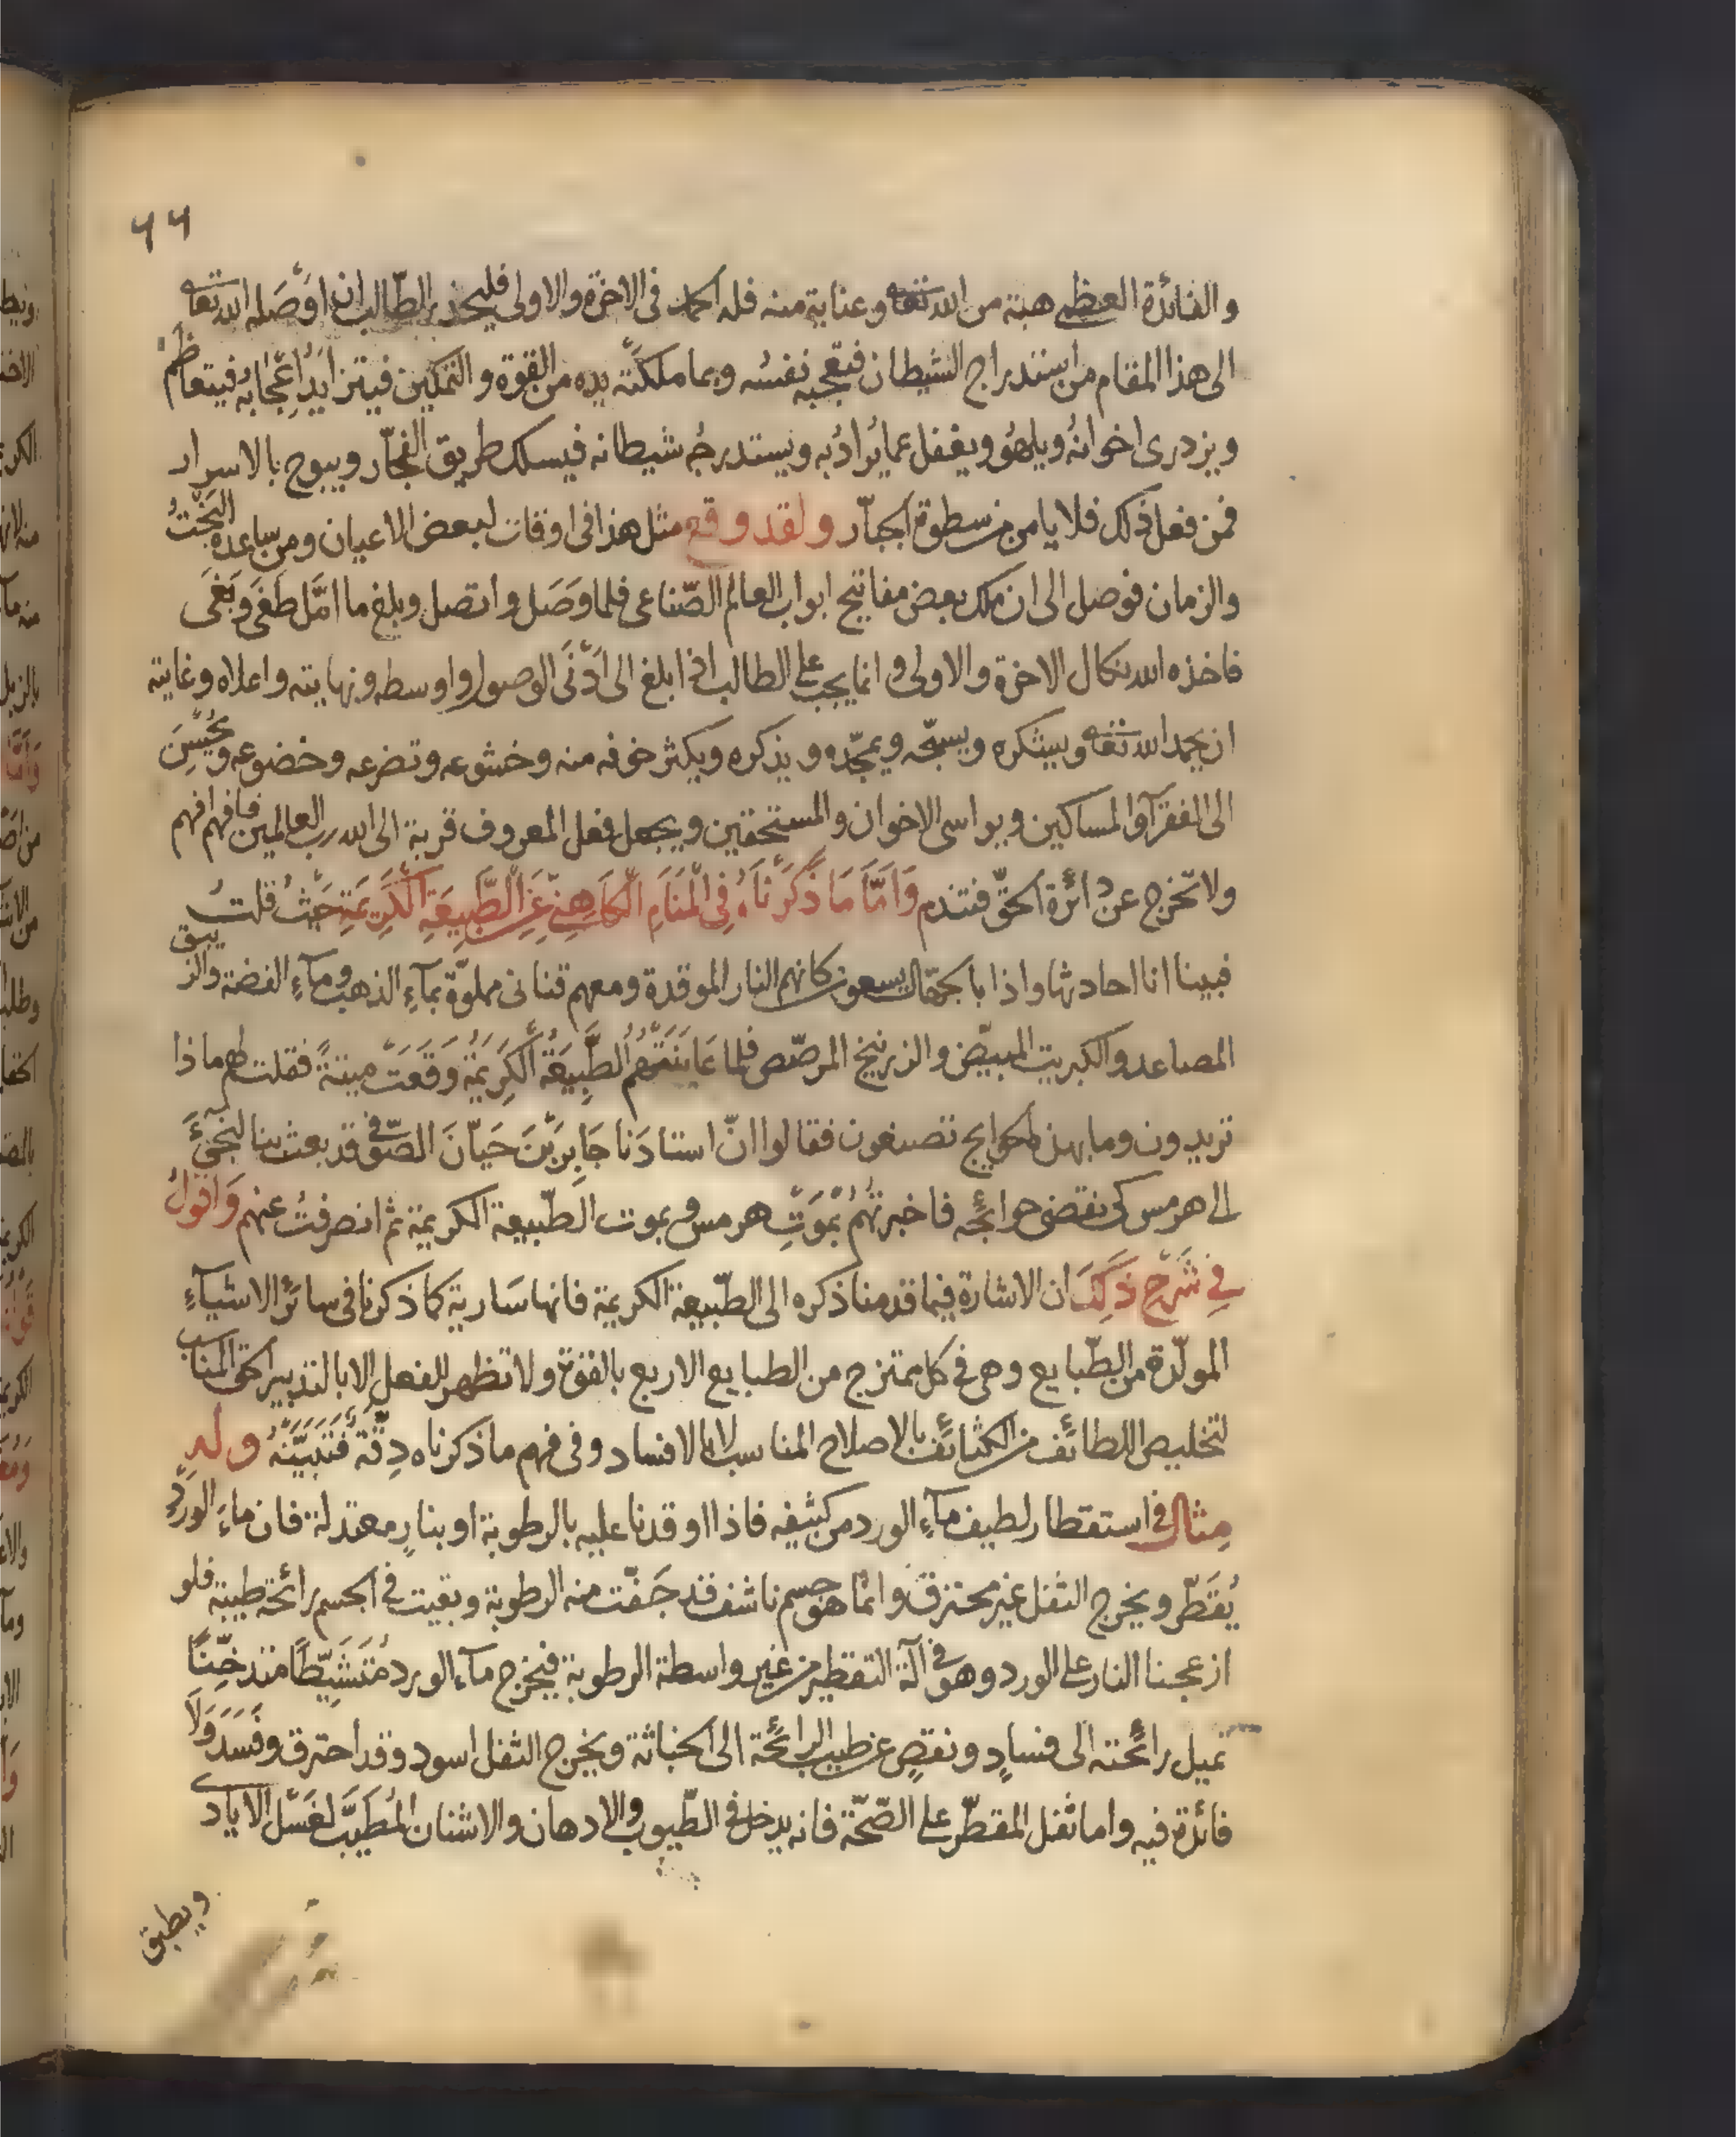 ٦٦
والفائدة العظمى هبة من الله تعا وعناية منه فله الحمد فى الاخرة والاولى فليحذر الطّالب ان اوْصَله الله تعا
الى هذا المقام من استدراج الشيطان فتعجبه نفسُه وبما ملكَتْه يده من القوة والتمكين فيتزايدُ اِعْجَابه فيتعاظم
ويزدرى اخوانهُ ويلهُو ويغفل عما يُرادُ به ويستدرجُه شيطانه فيسلك طريق الفجّار ويبوح بالاسرار
فمن فعل ذلك فلا يامن من سطوة الجبّار ولقد وقع مثل هذا فى اوقات لبعض الاعيان ومن ساعده البَخْتُ
والزمان فوصل الى ان ملك بعض مفاتيح ابواب العالم الصّناعى فلما وَصَل واتصل وبلغ ما امَّل طَغَى وَبَغَى
فاخذه الله نكال الاخرة والاولى وانما يجب على الطالب اذا بلغ الى اَدْنَى الوصول واوسطه ونهايته واعلاه وغايته
ان يحمد الله تعا ويشكره ويسبّحه ويمجّده ويذكره ويكثر خوفه منه وخشوعه وتضرعه وخضوعه ويُحْسِنَ
الى الفقرآ والمساكين ويواسى الاخوان والمستحقين ويجعل فعل المعروف قربة الى الله رب العالمين فافهم افهم
ولا تخرج عن دائرة الحقّ فتندم وَاَمَّا مَا ذَكَرْنَاهُ فِى الْمَنَامِ الْكَاهِنِىّ عَنِ الطَّبِيعَةِ الْكَرِيمَةِ حَيْثُ قلتُ
فبينا انا احادثها واذا بالجهّال يسعون كانهم النار الموقدة ومعهم قنانى مملوّة بمآءِ الذهب ومآءِ الفضة والزيبق
المصاعد والكبريت المبيّض والزرنيخ المرصّص فلما عَايَنَتْهُم الطَّبِيعَةُ الْكَرِيمَةُ وَقَعَتْ ميتةً فقلت لهم ماذا
تريدون وما بهذه الحوايج تصنعون فقالوا انّ استادَنا جَابِرَ بْنَ حَيّانَ الصّوفى قد بعث بنا لنجئَ
الى هرمس كى نقضى حوائجه فاخبرتُهُمْ بمَوْتِ هرمس وبموت الطّبيعة الكريمة ثم انصرفتُ عنهم وَاَقولُ
فِى شَرْحِ ذَلِكَ ان الاشارة فيما قدمنا ذكره الى الطّبيعة الكريمة فانها سَارية كما ذكرنا فى سائر الاشيآءِ
المولّدة من الطّبايع وهى فى كل ممتزج من الطبايع الاربع بالقوة ولا تظهر للفعل الا بالتدبير الحق المناسب
لتخليص اللطائف من الكثائف بالاصلاح المناسب لا بالافساد وفى فهم ما ذكرناه دِقّة فَتَبَيَّنْهُ وله
مثال فى استقطار لطيف مآءِ الورد من كثيفه فاذا اوقدنا عليه بالرطوبة او بنارٍ معتدلة فان ماءَ الوردِ
يُقَطّر ويخرج الثفل غير محترق وانما هو جسم ناشف قد جَفّت منه الرطوبة وبقيت فى الجسم رائحة طيبة فلو
ازعجنا النار على الورد وهو فى آلة التقطير من غير واسطة الرطوبة فيخرج مآء الورد مُتَشَيِّطًا متدخِّنًا
تميل رائحته الى فسادٍ ونقصٍ عن طيب الرائحة الى الخباثة ويخرج الثفل اسود وقد احترق وفَسَدَ وَلَا
فائدة فيه واما ثفل المقطّر على الصّحّة فانه يدخل فى الطّيوب والادهان والاشنان المُطَيَّب لغَسْل الايادى
ويطبق